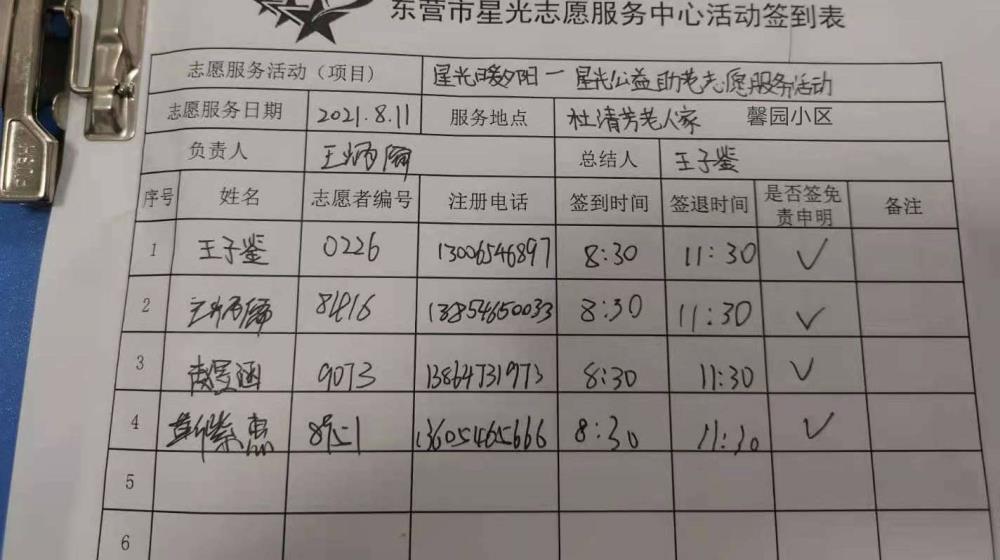 东营市星光志愿服务中心活动签到表
志愿服务活动（项目） 星光暖夕阳一星光公益助老志愿服务活动
志愿服务日期 2021.8.11 服务地点 杜清芳老人家 馨园小区
负责人 王炳 总结人 王子鉴
序号 姓名 志愿者编号 注册电话 签到时间 签退时间 是否签免责申明 备注
1 王子鉴 0226 13006546897 8:30 11:30 ✓
2 8416 13854650033 8:30 11:30 ✓
3 9073 13864731973 8:30 11:30 ✓
4 13605465666 8:30 11:30 ✓
5
6